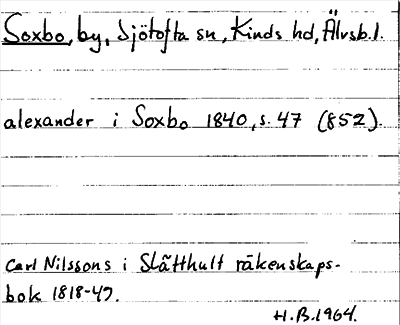 Soxbo, by, Sjötofta sn, Kinds hd, Älvsb.l.
alexander i Soxbo 1840, s. 47 (852).
Carl Nilssons i Slätthult räkenskaps-
bok 1818-49.
H.B. 1964.